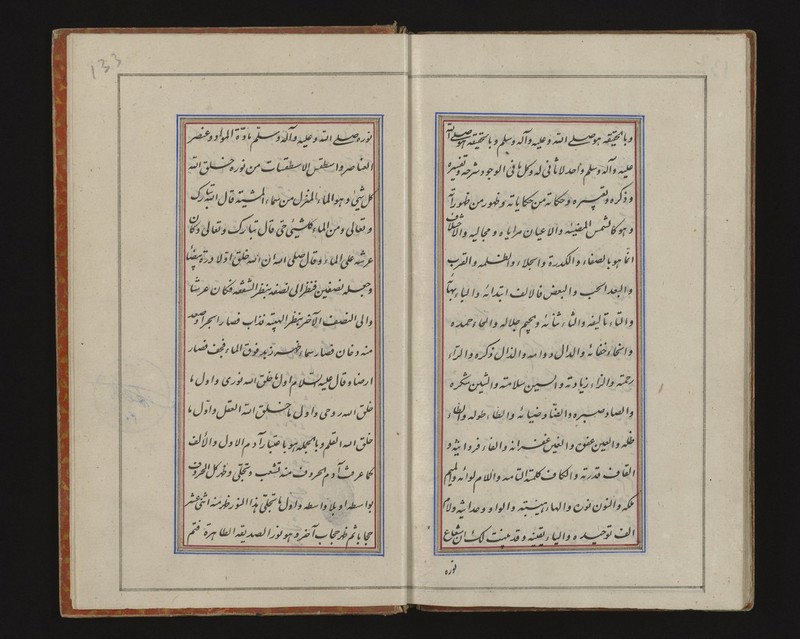 وبالحقيقة هو صلى الله وعليه وآله وسلم وباستحقيقة هو صلى الله
عليه وآله وسلم واحد لا ثاني له وكل ما في الوجود شرحه وتفسيره
وذكره وتعبيره وحكاية من حكاياته وظهور من ظهوراته
وهو كالشمس المضيئة والأعيان مراياه ومجاليه والاختلاف
انما هو بالصفاء والكدرة والجلاء والظلمة والقرب
والبعد الحب والبعض فالالف ابتدائه والباء بهائه
والتاء تأليفه والثاء ثنائه والجيم جلاله والحاء حمده
والخاء خفائه والدال دوامه والذال ذكره والراء
رحمته والزاء زيادته والسين سلامته والشين شكره
والصاد صبره والضاد ضيائه والطاء طوله والظاء
ظله والعين عفوه والغين غفرانه والفاء فردانيته و
القاف قدرته والكاف كلمته التامة واللام لوائه والميم
ملكه والنون نوره والهاء هيبته والواو وحدانيته ولام
الف توحيده والياء يقينه وقد بينت لك ان شعاع
نوره
133
نوره صلى الله وعليه وآله وسلم مادة المواد وعنصر
العناصر واسطقس الاسطقسات من نوره خلق الله
كل شيئ وهو الماء المنزل من سماء المشية قال الله تبارك
وتعالى ومن الماء كل شيئ حي قال تبارك وتعالى وكان
عرشه على الماء وقال صلى الله ان الله خلق اولا درة بيضاء
وجعله نصفين فنظر الى نصفه بنظر الشفقة فكان عرشا
والى النصف الآخر بنظر الهيبة فذاب فصار ابحرا وصعد
منه دخان فصار سماء وظهر زبد فوق الماء فجف فصار
ارضا وقال عليه السلام اول ما خلق الله نوري واول ما
خلق الله روحي واول ما خلق الله العقل واول ما
خلق الله القلم وبالجملة هو باعتبار آدم الاول والألف
كما عرفت آدم الحروف منه تشعب وتجلى وظهر كل الحروف
بواسطة او بلا واسطة واول ما تجلى هذا النور ظهر منه اثنى عشر
حجابا ثم ظهر حجاب آخر وهو نور الصديقة الطاهرة فتم